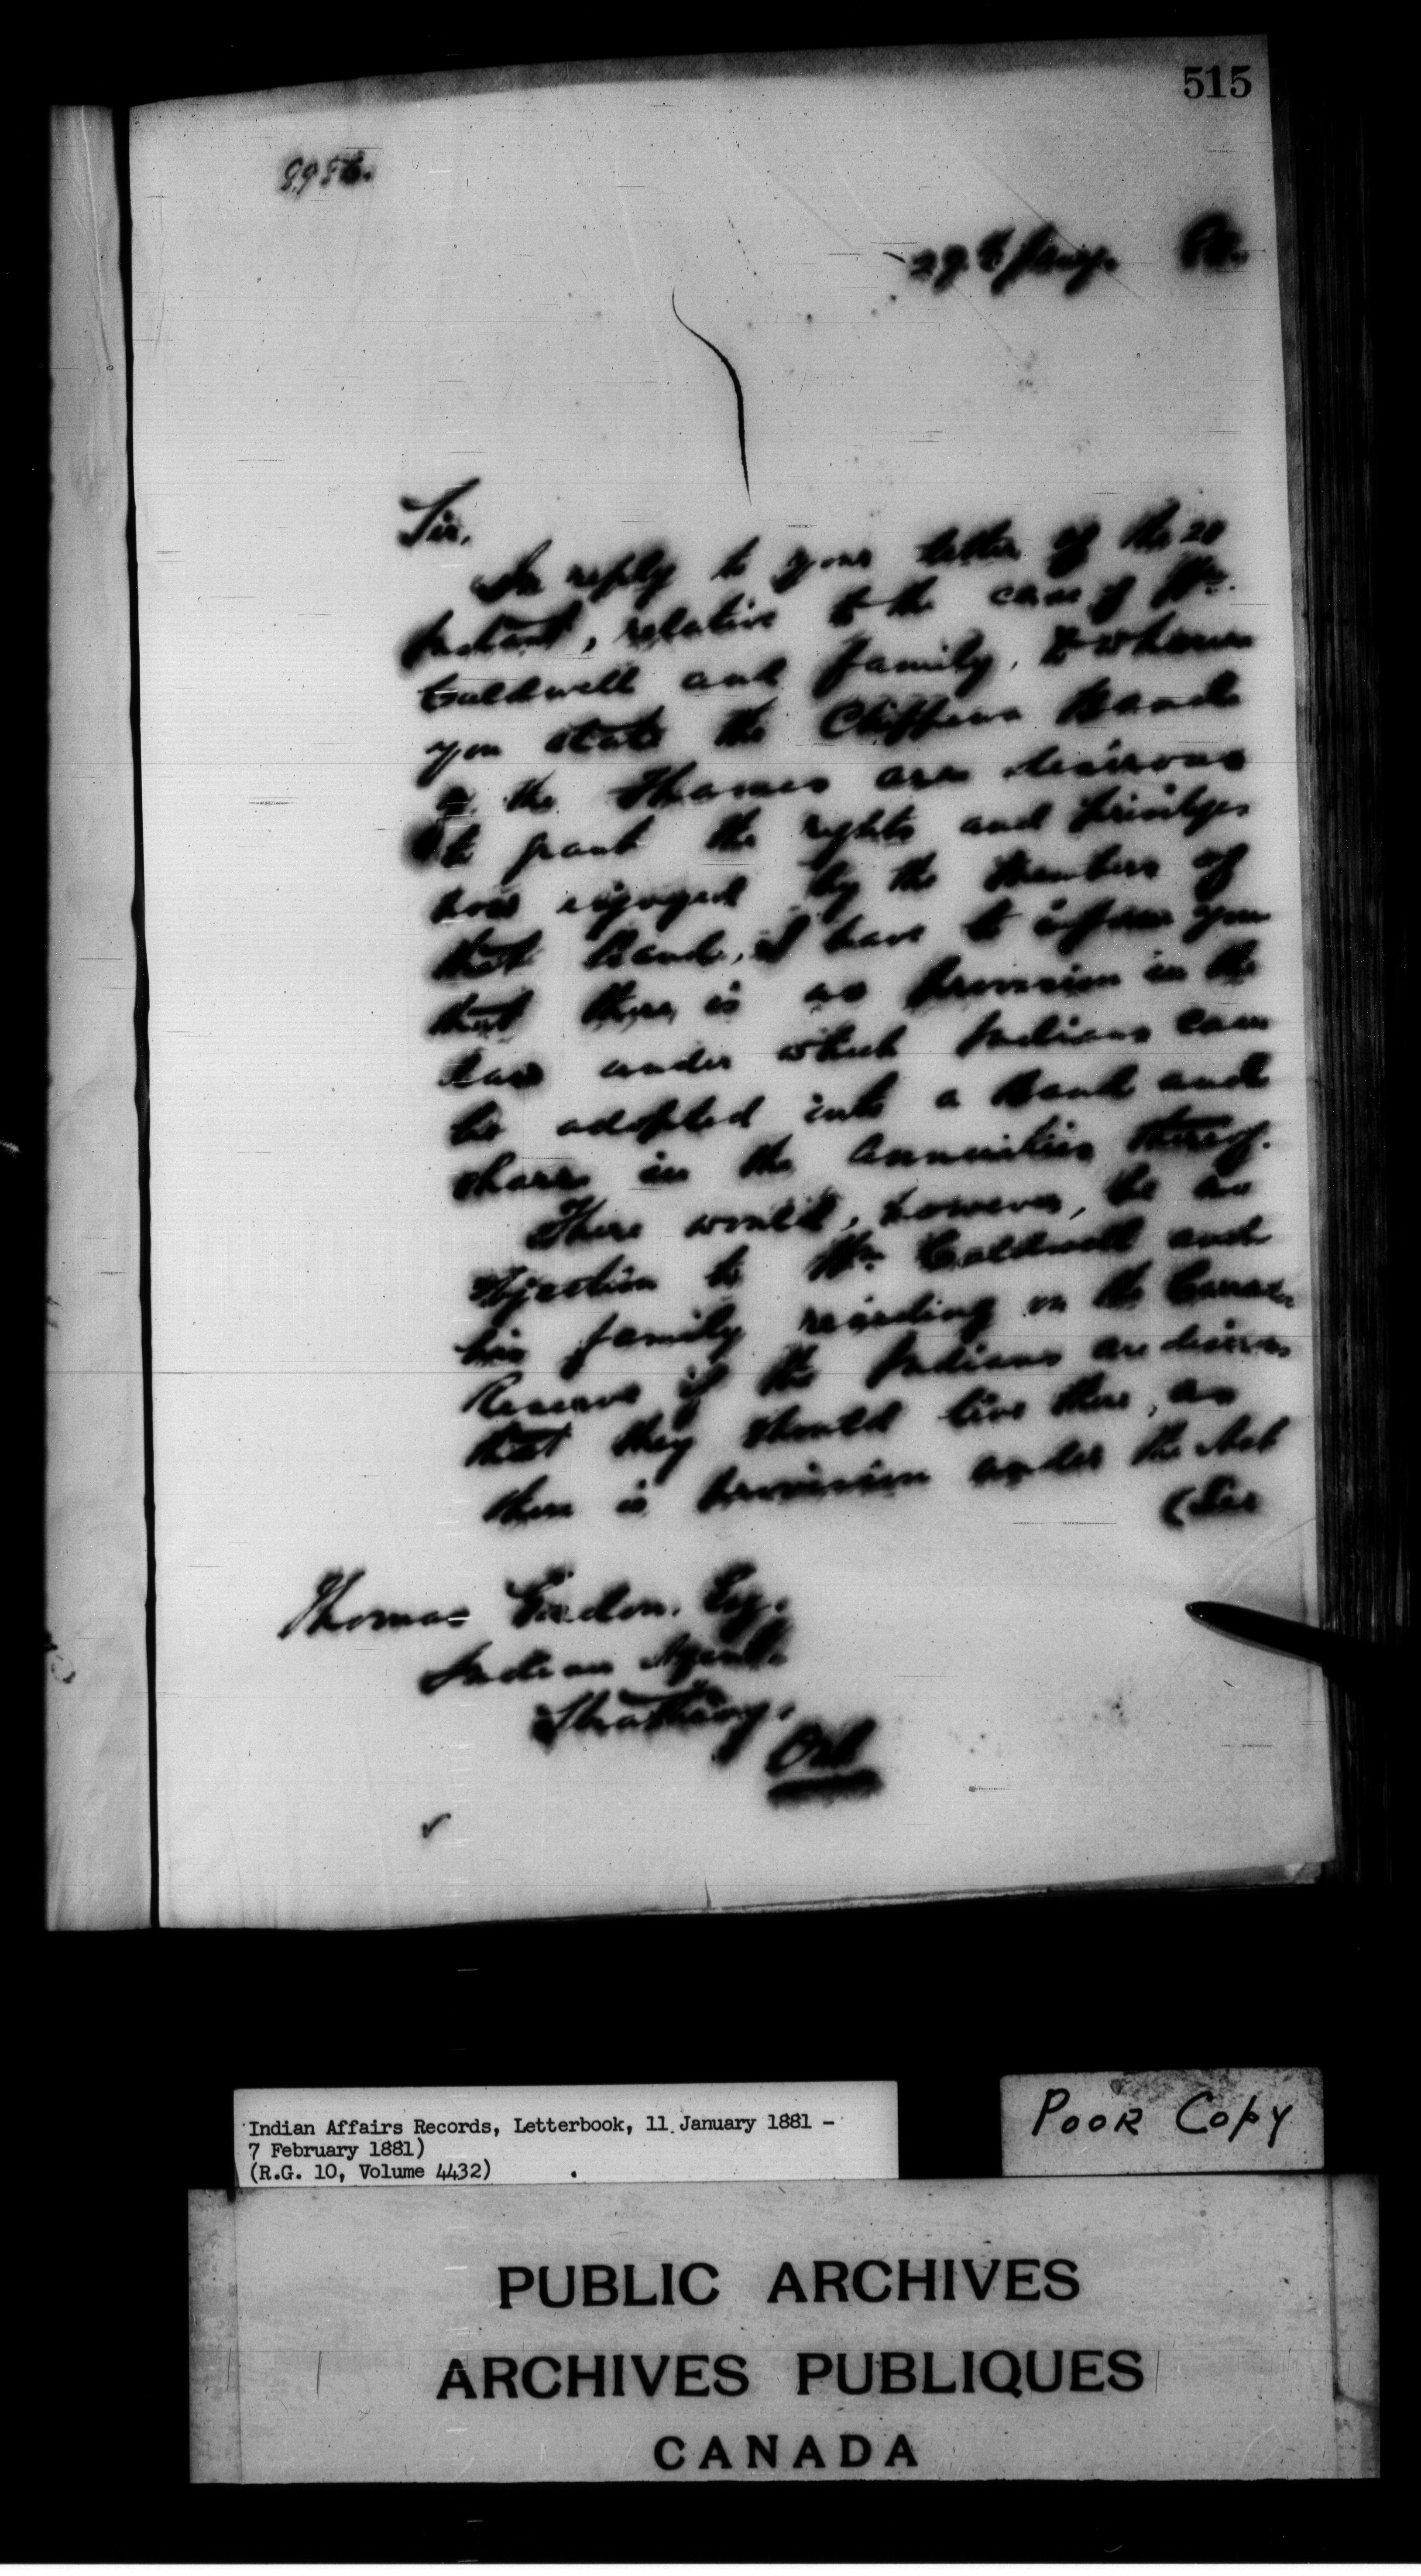 515
29th Jany. 81.
Sir,
In reply to your letter of the 20
Instant, relative to the case of Wm.
Caldwell and family, to whom
you state the Chippewa Band
of the Thames are desirous
to grant the rights and privileges
now enjoyed by the Members of
that Band, I have to inform you
that there is no provision in the
Law under which Indians can
be adopted into a Band and
share in the Annuities thereof.
There would, however, be no
objection to Wm. Caldwell and
his family residing on the
Reserve if the Indians are desirous
that they should live there, as
there is provision under the Act
(See
Thomas Gordon, Esq.
Indian Agent.
Strathroy,
Ont
Indian Affairs Records, Letterbook, 11 January 1881 -
7 February 1881)
(R.G. 10, Volume 4432)
Poor Copy
PUBLIC ARCHIVES
ARCHIVES PUBLIQUES
CANADA